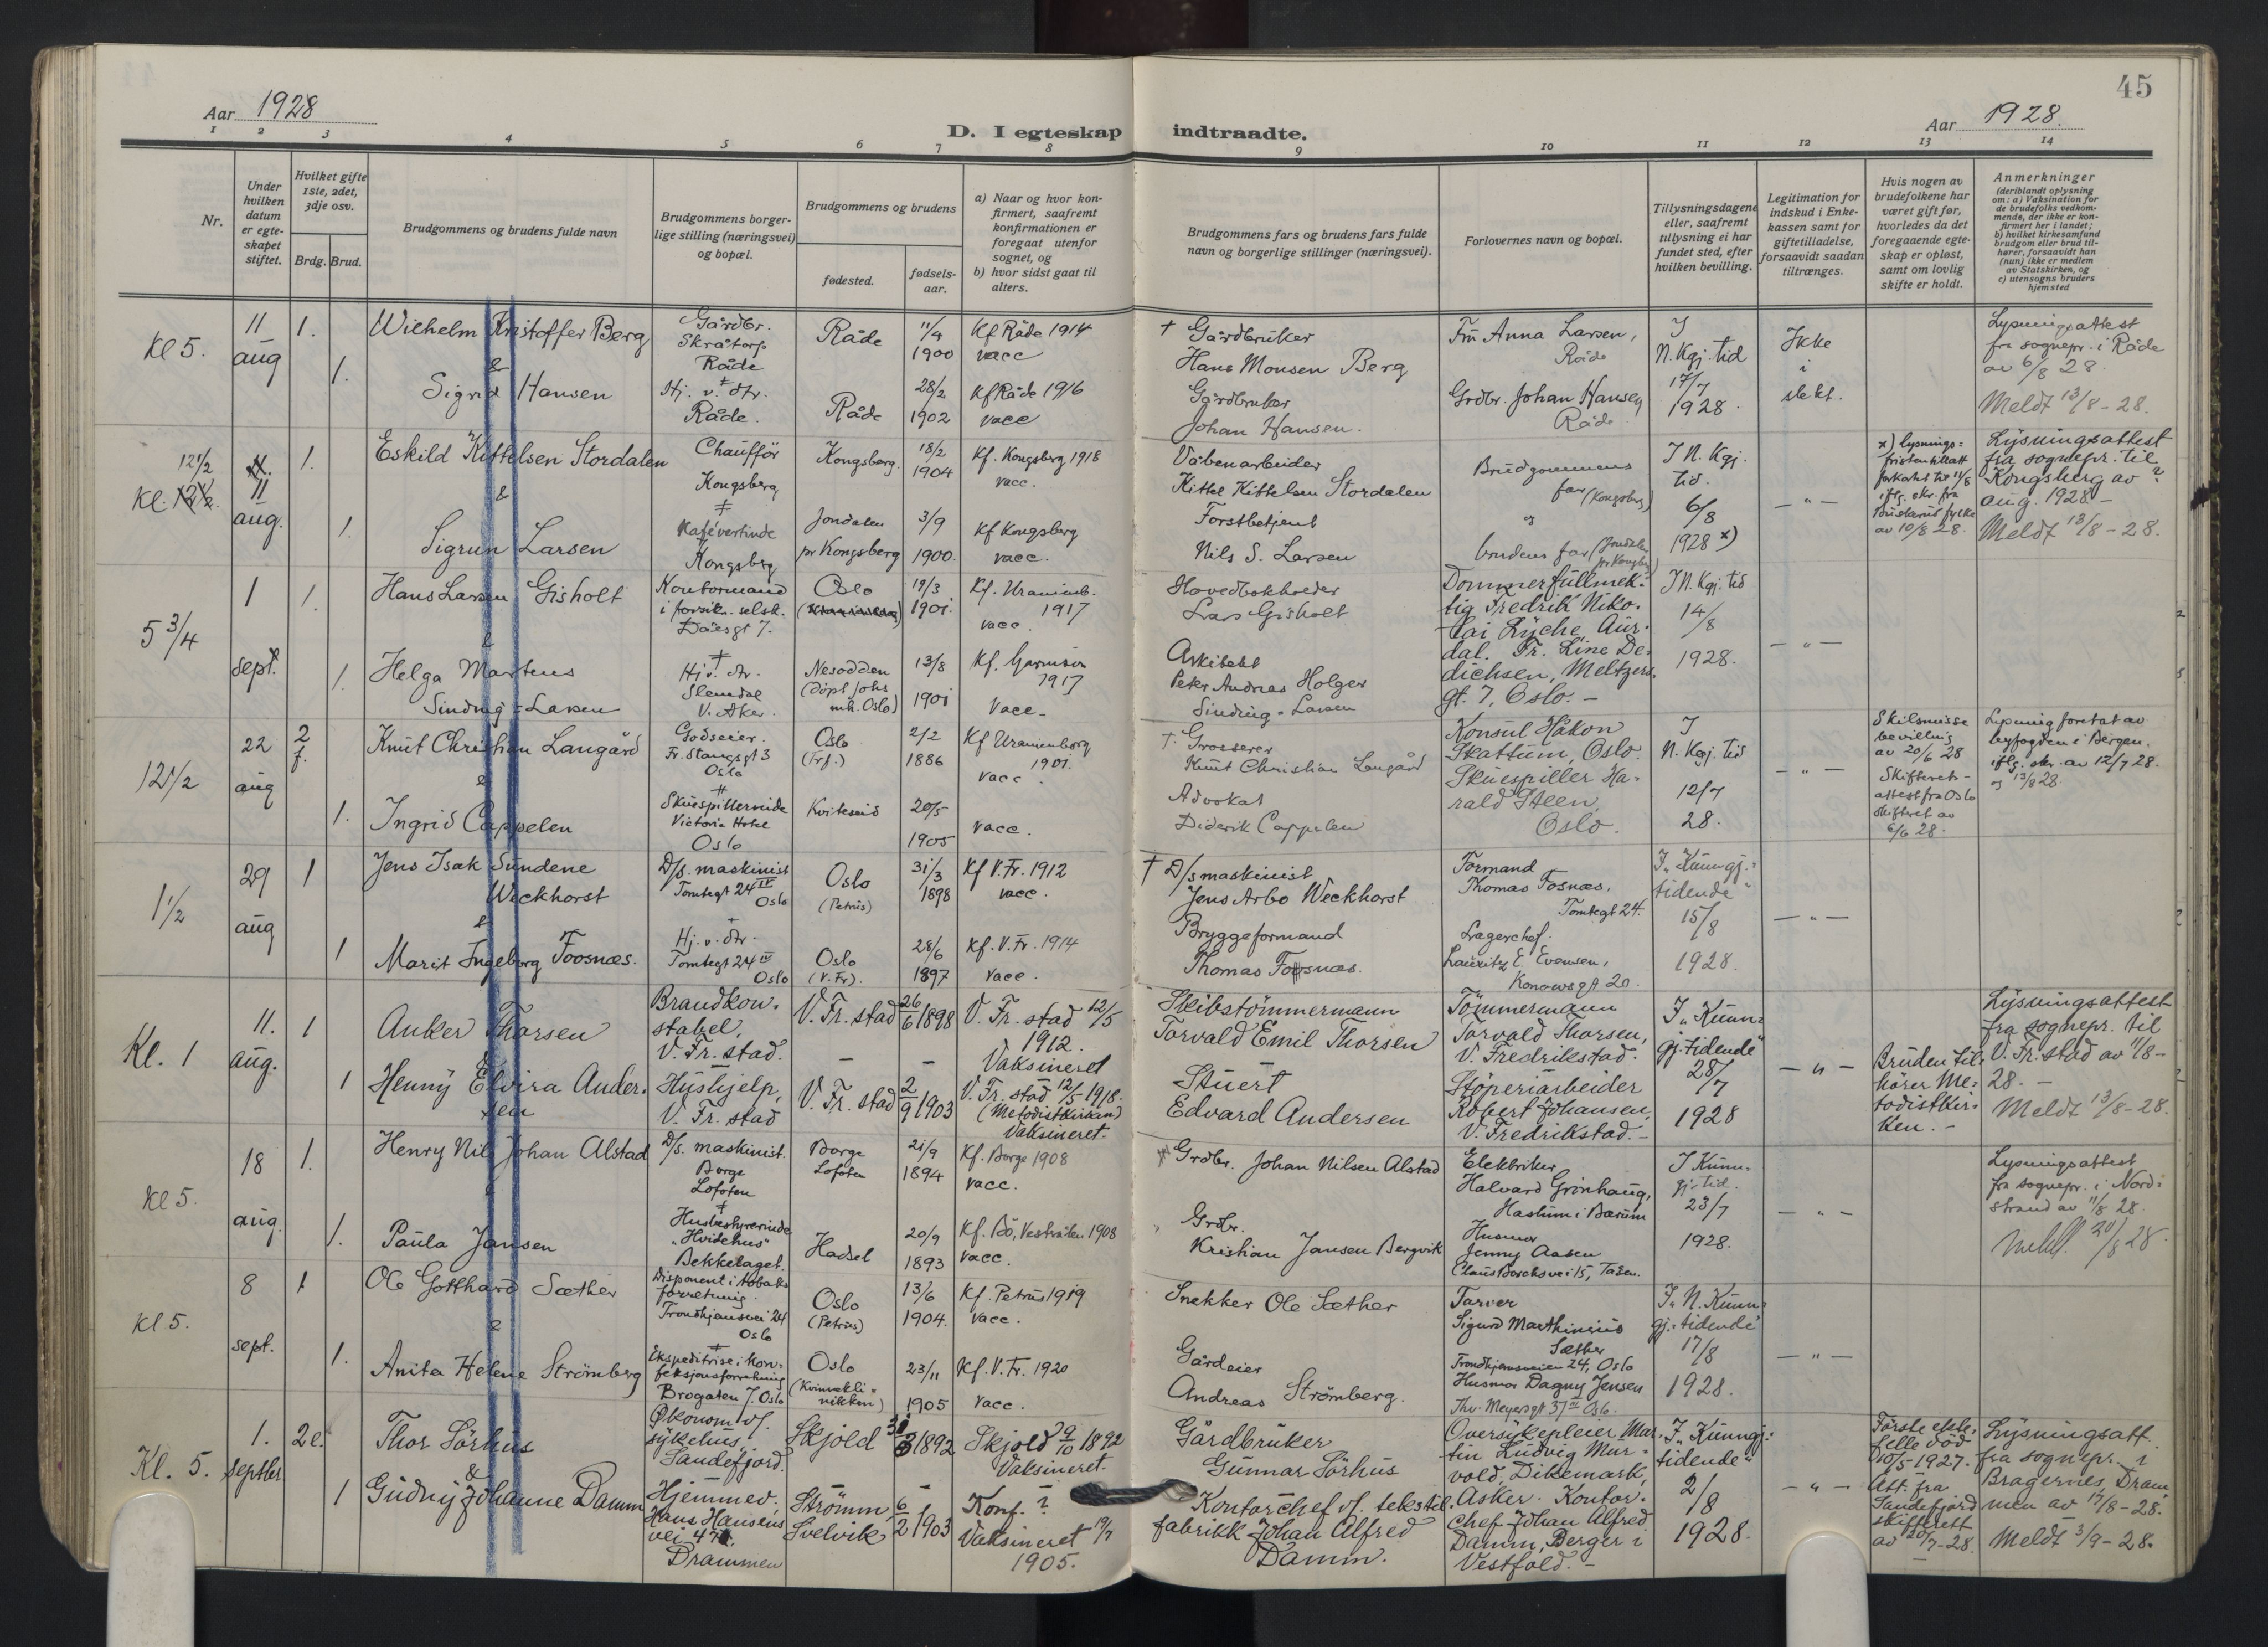 45
Aar 1928
Aar 1928.
D. I egteskap indtraadte.
1 2 3 4 5 6 7 8 9 10 11 12 13 14
Nr.
Under hvilken datum er egteskapet stiftet.
Hvilket gifte 1ste, 2det, 3dje osv.
Brdg. Brud.
Brudgommens og brudens fulde navn
Brudgommens borgerlige stilling (næringsvei) og bopæl.
Brudgommens og brudens
fødested.
fødselsaar.
a) Naar og hvor konfirmert, saafremt konfirmationen er foregaat utenfor sognet, og
b) hvor sidst gaat til alters.
Brudgommens fars og brudens fars fulde navn og borgerlige stillinger (næringsvei).
Forlovernes navn og bopæl.
Tillysningsdagene eller, saafremt tillysning ei har fundet sted, efter hvilken bevilling.
Legitimation for indskud i Enkekassen samt for giftetilladelse, forsaavidt saadan tiltrænges.
Hvis nogen av brudefolkene har været gift før, hvorledes da det foregaaende egteskap er opløst, samt om lovlig skifte er holdt.
Anmerkninger
(deriblandt oplysning om: a) Vaksination for de brudefolks vedkommende, der ikke er konfirmert her i landet;
b) hvilket kirkesamfund brudgom eller brud tilhører, forsaavidt han (hun) ikke er medlem av Statskirken, og
c) utensogns bruders hjemsted
Kl 5.
11 aug
1.
Wilhelm Kristoffer Berg
&
Gårdbr.
Skråtorp
Råde
Råde
11/4 1900
Kf Råde 1914
vacc
† Gårdbruker
Hans Monsen Berg
Fru Anna Larsen,
Råde
I
N. Kgj. tid
17/7
1928.
Ikke
i
slekt.
Lysningsattest
fra sognepr. i Råde
av 6/8 28.
Meldt 13/8-28.
1.
Sigrid Hansen
Hj. v. dtr.
Råde.
Råde
28/2 1902
Kf Råde 1916
vacc
Gårdbruker
Johan Hansen.
Grdbr. Johan Hansen
Råde
12 1/2
Kl.
11 aug.
1.
Eskild Kittelsen Stordalen
&
Chaufför
Kongsberg
Kongsberg.
18/2 1904
Kf. Kongsberg 1918
vacc.
Våbenarbeider
Kittel Kittelsen Stordalen
Brudgommens
far (Kongsberg)
og
I N. Kgj.
tid.
6/8
1928 x)
- " -
x) lysnings=
av 10/8 28.
Lysningsattest
fra sognepr. til
Kongsberg av ?
aug. 1928 -
Meldt 13/8-28.
1.
Sigrun Larsen
Kafévertinde
Kongsberg
Jondalen
pr Kongsberg
3/9 1900.
Kf Kongsberg
vacc.
Forstbetjent
Nils S. Larsen
brudens far (Jondalen
pr Kongsberg)
5 3/4
1 sept.
1.
Hans Larsen Gisholt
&
Kontormand
i forsikr. selsk.
Daasgt 7.
Oslo
19/3 1901.
Kf. Uranienb.
1917
vacc.
Hovedbokholder
Lars Gisholt
Dommerfullmek=
tig Fredrik Niko=
lai Lyche, Aur=
dal. Fr. Line De=
dichsen, Meltzers
gt. 7, Oslo. -
I N. Kgj. tid
14/8
1928.
- " -
1.
Helga Martens
Sinding=Larsen
Hj. v. dtr.
Slemdal
V. Aker.
Nesodden
(döpt Johs
mk. Oslo)
13/8 1901
Kf. Garnison
1917
Vacc.
Arkitekt
Peter Andreas Holger
Sinding-Larsen
12 1/2
22 aug
2 f.
Knut Christian Langård
&
Godseier.
Fr. Stangsgt 3
Oslo
Oslo
(Trf.)
2/2 1886
Kf Uranienborg
1901.
vacc.
† Grosserer
Knut Christian Langård
Konsul Håkon
Skattum, Oslo.
Skuespiller Ha=
rald Steen,
Oslo.
I
N. Kgj. tid
12/7
28.
- " -
Skilsmisse
bevilling
av 20/6 28
Skifteret-
attest fra Oslo
skifteret av
6/6 28.
Lysning foretat av
byfogden i Bergen.
iflg. skr. av 12/7 28.
og 13/8 28
1.
Ingrid Cappelen
Skuespillerinde
Victoria Hotel
Oslo
Kviteseid
20/5 1905
vacc.
Advokat
Diderik Cappelen
1 1/2
29 aug
1
Jens Isak Sundene
Weckhorst
&
D/s. maskinist
Tomtegt 24 IV
Oslo
Oslo
(Petrus)
31/3 1898
Kf V. Fr. 1912
vacc.
† D/s maskinist
Jens Arbo Weckhorst
Formand
Thomas Fosnæs,
Tomtegt 24.
I „Kunngj.=
tidende"
15/8
1928.
- " -
1
Marit Ingeborg Foosnæs.
Hj. v. dtr.
Tomtegt 24 IV
Oslo
Oslo
(V. Fr).
28/6 1897
Kf. V. Fr. 1914
vacc.
Bryggeformand
Thomas Fosnæs.
Lagerchef.
Lauritz E. Evensen,
Konowsgt 20.
Kl. 1
11. aug.
1
Anker Thorsen
&
Brandkon=
stabel,
V. Fr. stad.
V. Fr. stad
26/6 1898
V. Fr. stad 12/5
1912.
Vaksineret
Skibstömmermann
Torvald Emil Thorsen
Tömmermann
Torvald Thorsen,
V. Fredrikstad.
I „Kunn=
gj. tidende"
28/7
1928
- " -
Bruden til=
hörer Me=
todistkir=
ken. -
Lysningsattest
fra sognepr. til
V. Fr. stad av 11/8-
28. -
Meldt 13/8-28.
1
Henny Elvira Ander=
sen
Hushjelp,
V. Fr. stad
V. Fr. stad
2/9 1903
V. Fr. stad 12/5 1918.
(Metodistkirken)
Vaksineret.
Stuert
Edvard Andersen
Stöperiarbeider
Robert Johansen,
V. Fredrikstad. -
Kl 5.
18 aug.
1.
Henry Nils Johan Alstad
&
D/s. maskinist.
Borge
Lofoten
Borge
Lofoten
21/9 1894
Kf. Borge 1908
vacc.
Grdbr. Johan Nilsen Alstad
Elektriker
Halvard Grönhaug,
Haslum i Bærum
I Kunn=
gj. tid.
23/7
1928.
- " -
Lysningsattest
fra sognepr. i Nord=
strand av 11/8 28.
Meldt. 20/8 28.
1.
Paula Jansen
Husbestyrerinde
„Hvidehus"
Bekkelaget.
Hadsel
20/9 1893
Kf. Bö, Vesterålen 1908
vacc.
Grdbr.
Kristian Jansen Bergvik
Husmor
Jenny Aasen
Claus Borchsvei 15, Tåsen.
Kl 5.
8 sept.
1
Ole Gotthard Sæther
&
Disponent i tobaks
forretning.
Trondhjemsvei 24
Oslo
Oslo
(Petrus)
13/6 1904.
Kf. Petrus 1919
vacc.
Snekker Ole Sæther
Farver
Sigurd Marthinius
Sæther
Trondhjemsveien 24, Oslo
I „N. Kunn=
gj.=tidende"
17/8
1928.
- " -
1.
Anita Helene Strömberg
Ekspeditrise i kon=
feksjonsforretning
Brogaten 7. Oslo
Oslo
(Kvinnekli=
nikken)
23/11 1905
Kf. V. Fr. 1920
vacc.
Gårdeier
Andreas Strömberg.
Husmor Dagny Jensen
Thv. Meyersgt 37 II Oslo.
Kl. 5.
1. septbr.
2e.
Thor Sörhus
&
Økonom v/
sykehus,
Sandefjord.
Skjold
1892
Skjold 9/10 1892
Vaksineret.
Gårdbruker
Gunnar Sörhus
Oversykepleier Mar=
tin Ludvig Mur=
vold, Dikemark,
Asker. Kontor=
chef Johan Alfred
Damm, Berger i
Vestfold. -
I „Kunngj.=
tidende"
2/8
1928.
- " -
Förste ekte=
felle död
10/5 1927.
Att. fra
Sandefjord
skifterett
av 20/7-28.
Lysningsatt.
fra sognepr. i
Bragernes, Dram
men av 17/8-28.
Meldt 3/9-28.
1
Gudny Johanne Damm
Hjemmev.
Hans Hansens
vei 47,
Drammen
Strömm,
Svelvik
6/2 1903
Konf. ?
Vaksineret 19/7
1905.
Kontorchef v/ tekstil=
fabrikk Johan Alfred
Damm.